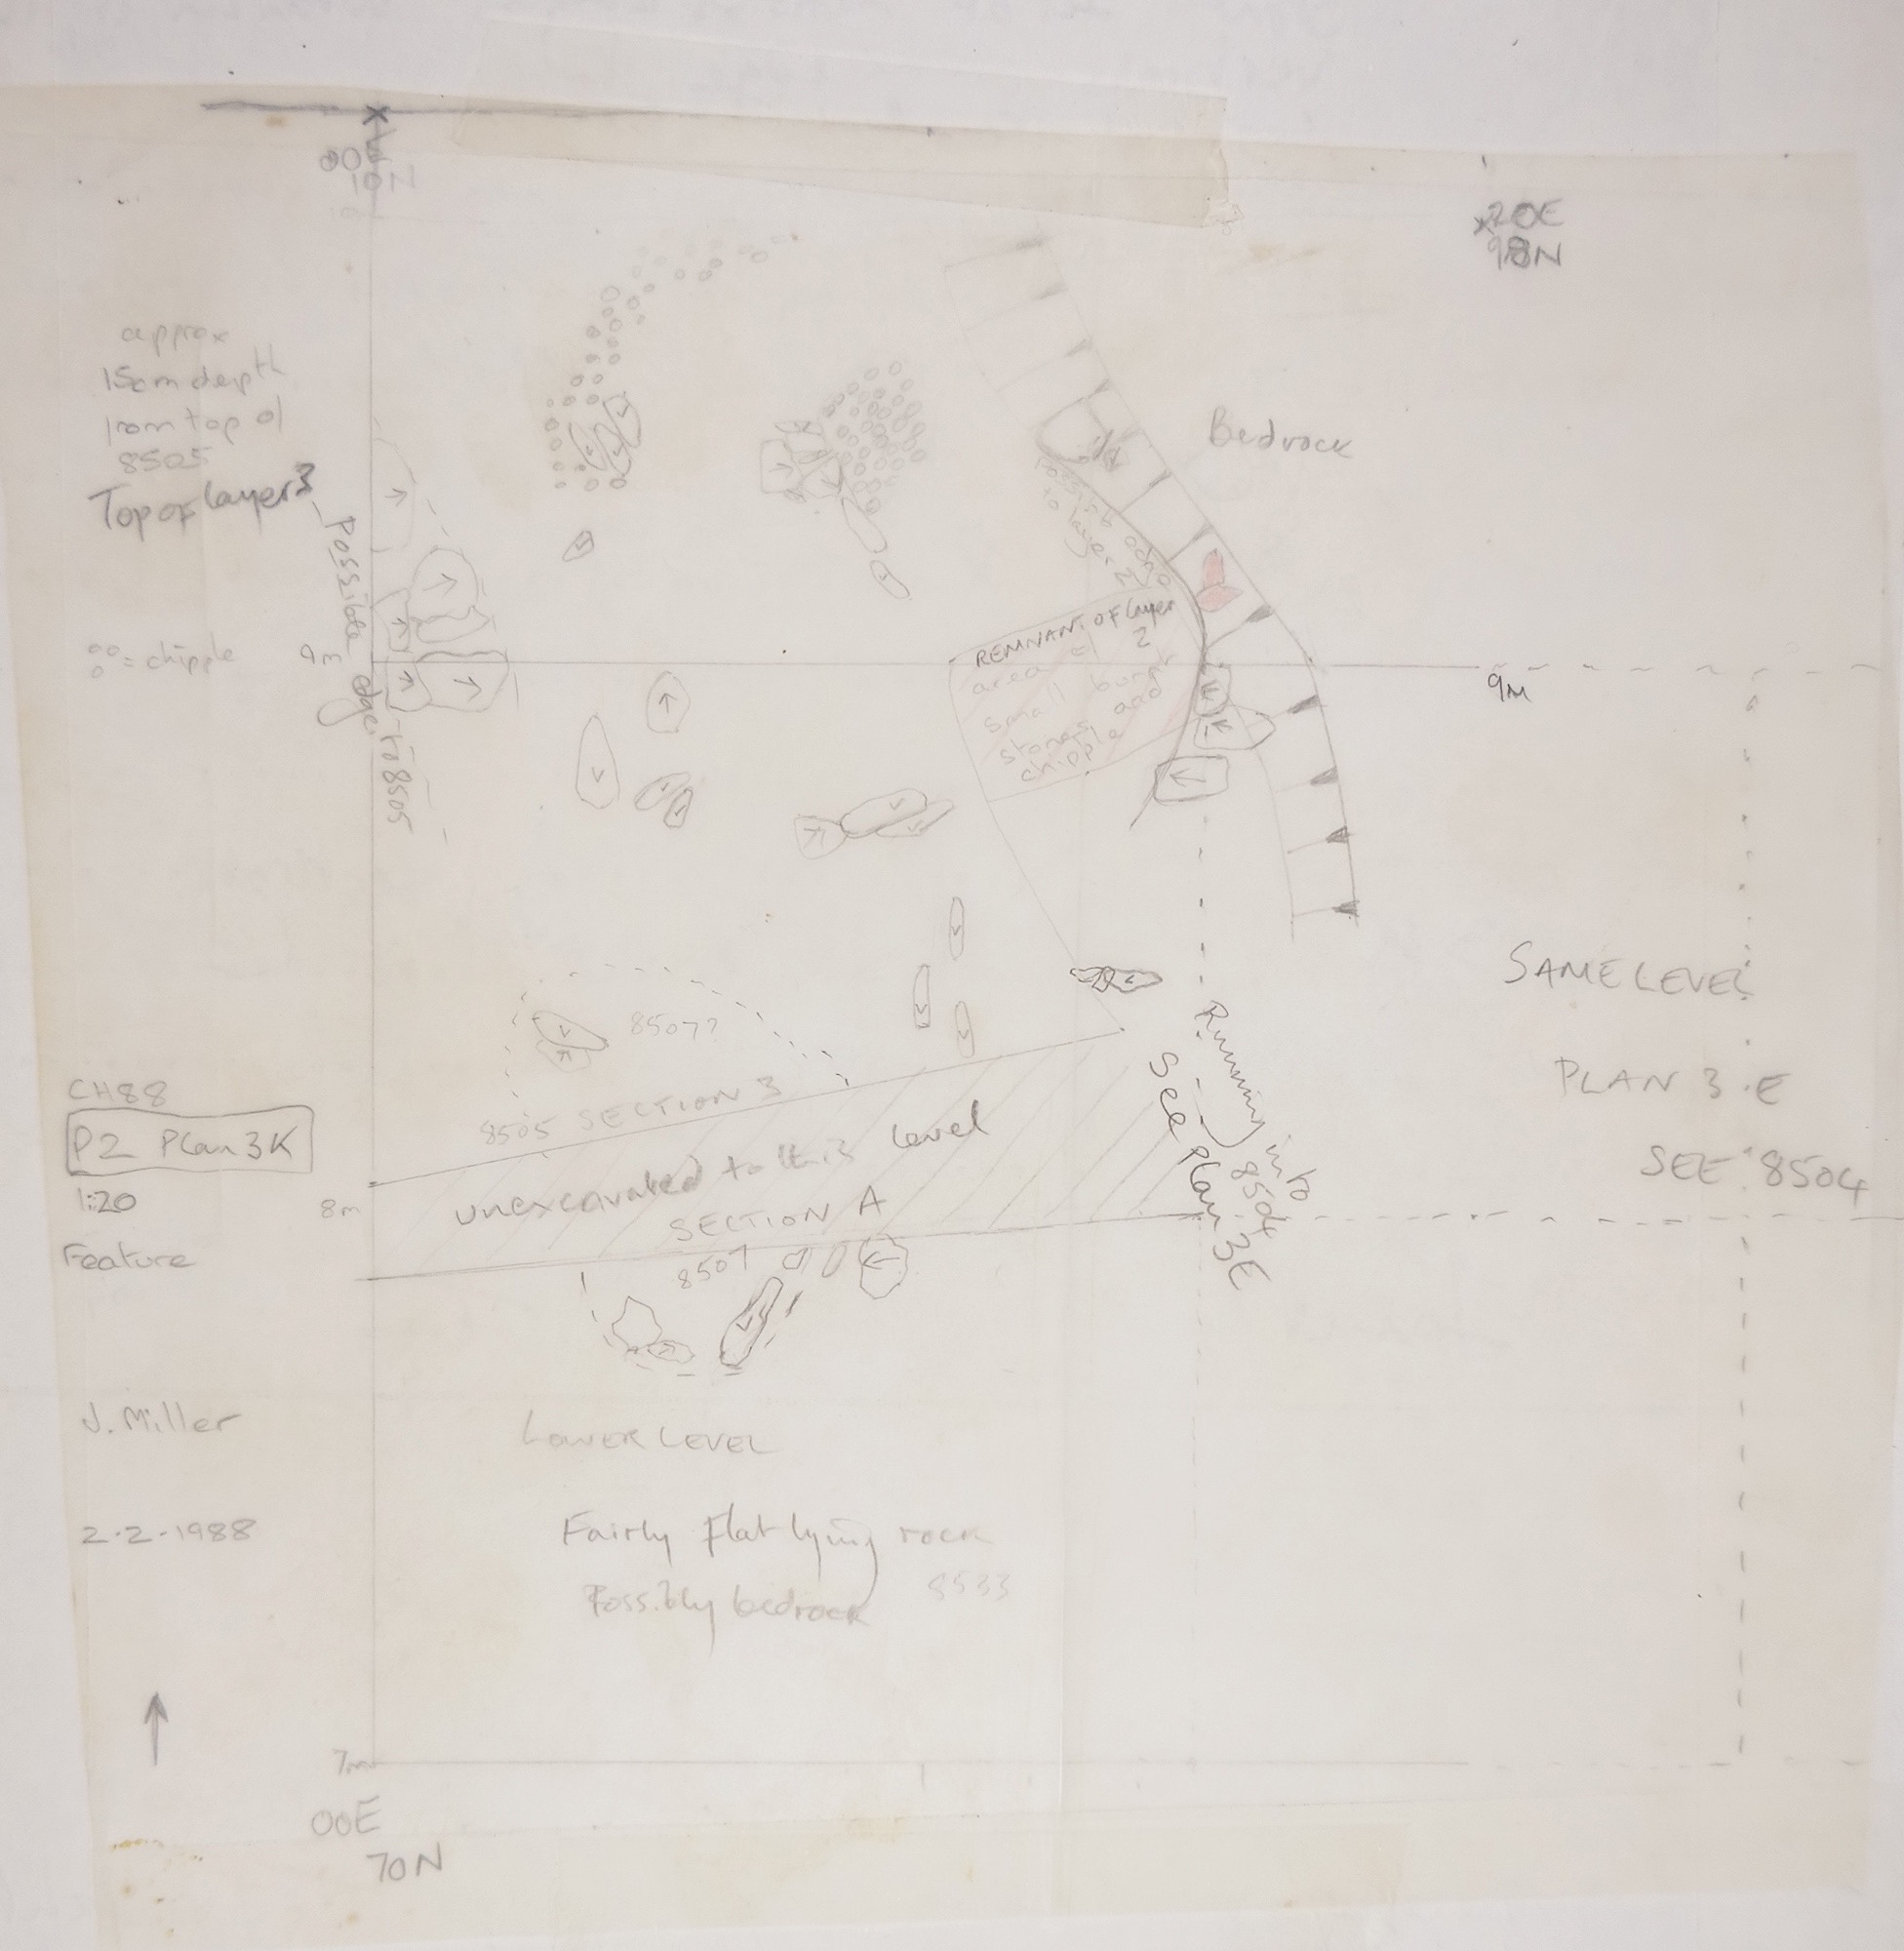 00E
10N
20E
98N
approx
15cm depth
from top of
8505
Top of Layer 3
Possible edge to 8505
= chipple
9m
Bedrock
Possible edge
to layer 2
REMNANT OF layer
2
area of
small burnt
stones and
chipple
9m
SAME LEVEL
PLAN 3.E
SEE 8504
8507?
Running into
8504
See Plan 3E
8505 SECTION 3
unexcavated to this level
SECTION A
8507
CH88
P2 Plan 3K
1:20
8m
Feature
J. Miller
LOWER LEVEL
2.2.1988
Fairly flat lying rock
Possibly bedrock
8533
7m
00E
70N